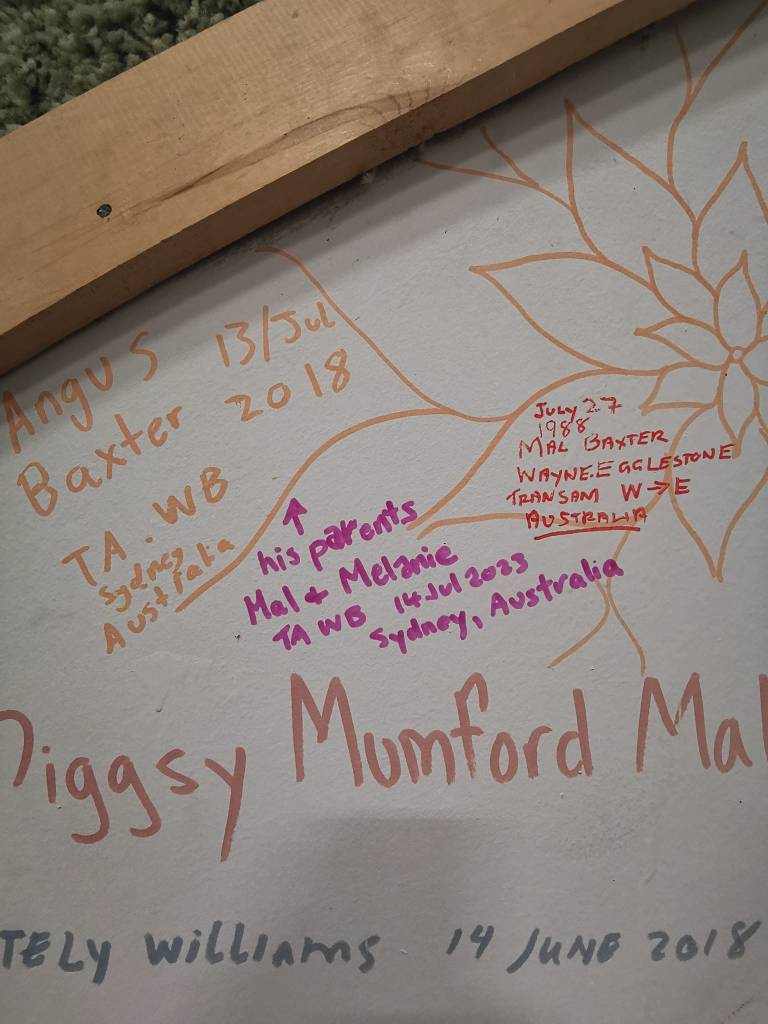 Angus 13/Jul
Baxter 2018
TA.WB
Sydney
Australia
↑
his parents
Mal & Melanie
TA WB 14 Jul 2023
Sydney, Australia
JULY 27
1988
MAL BAXTER
WAYNE.EGGLESTONE
TRANSAM W→E
AUSTRALIA
Mumford
TELY WILLIAMS 14 JUNE 2018